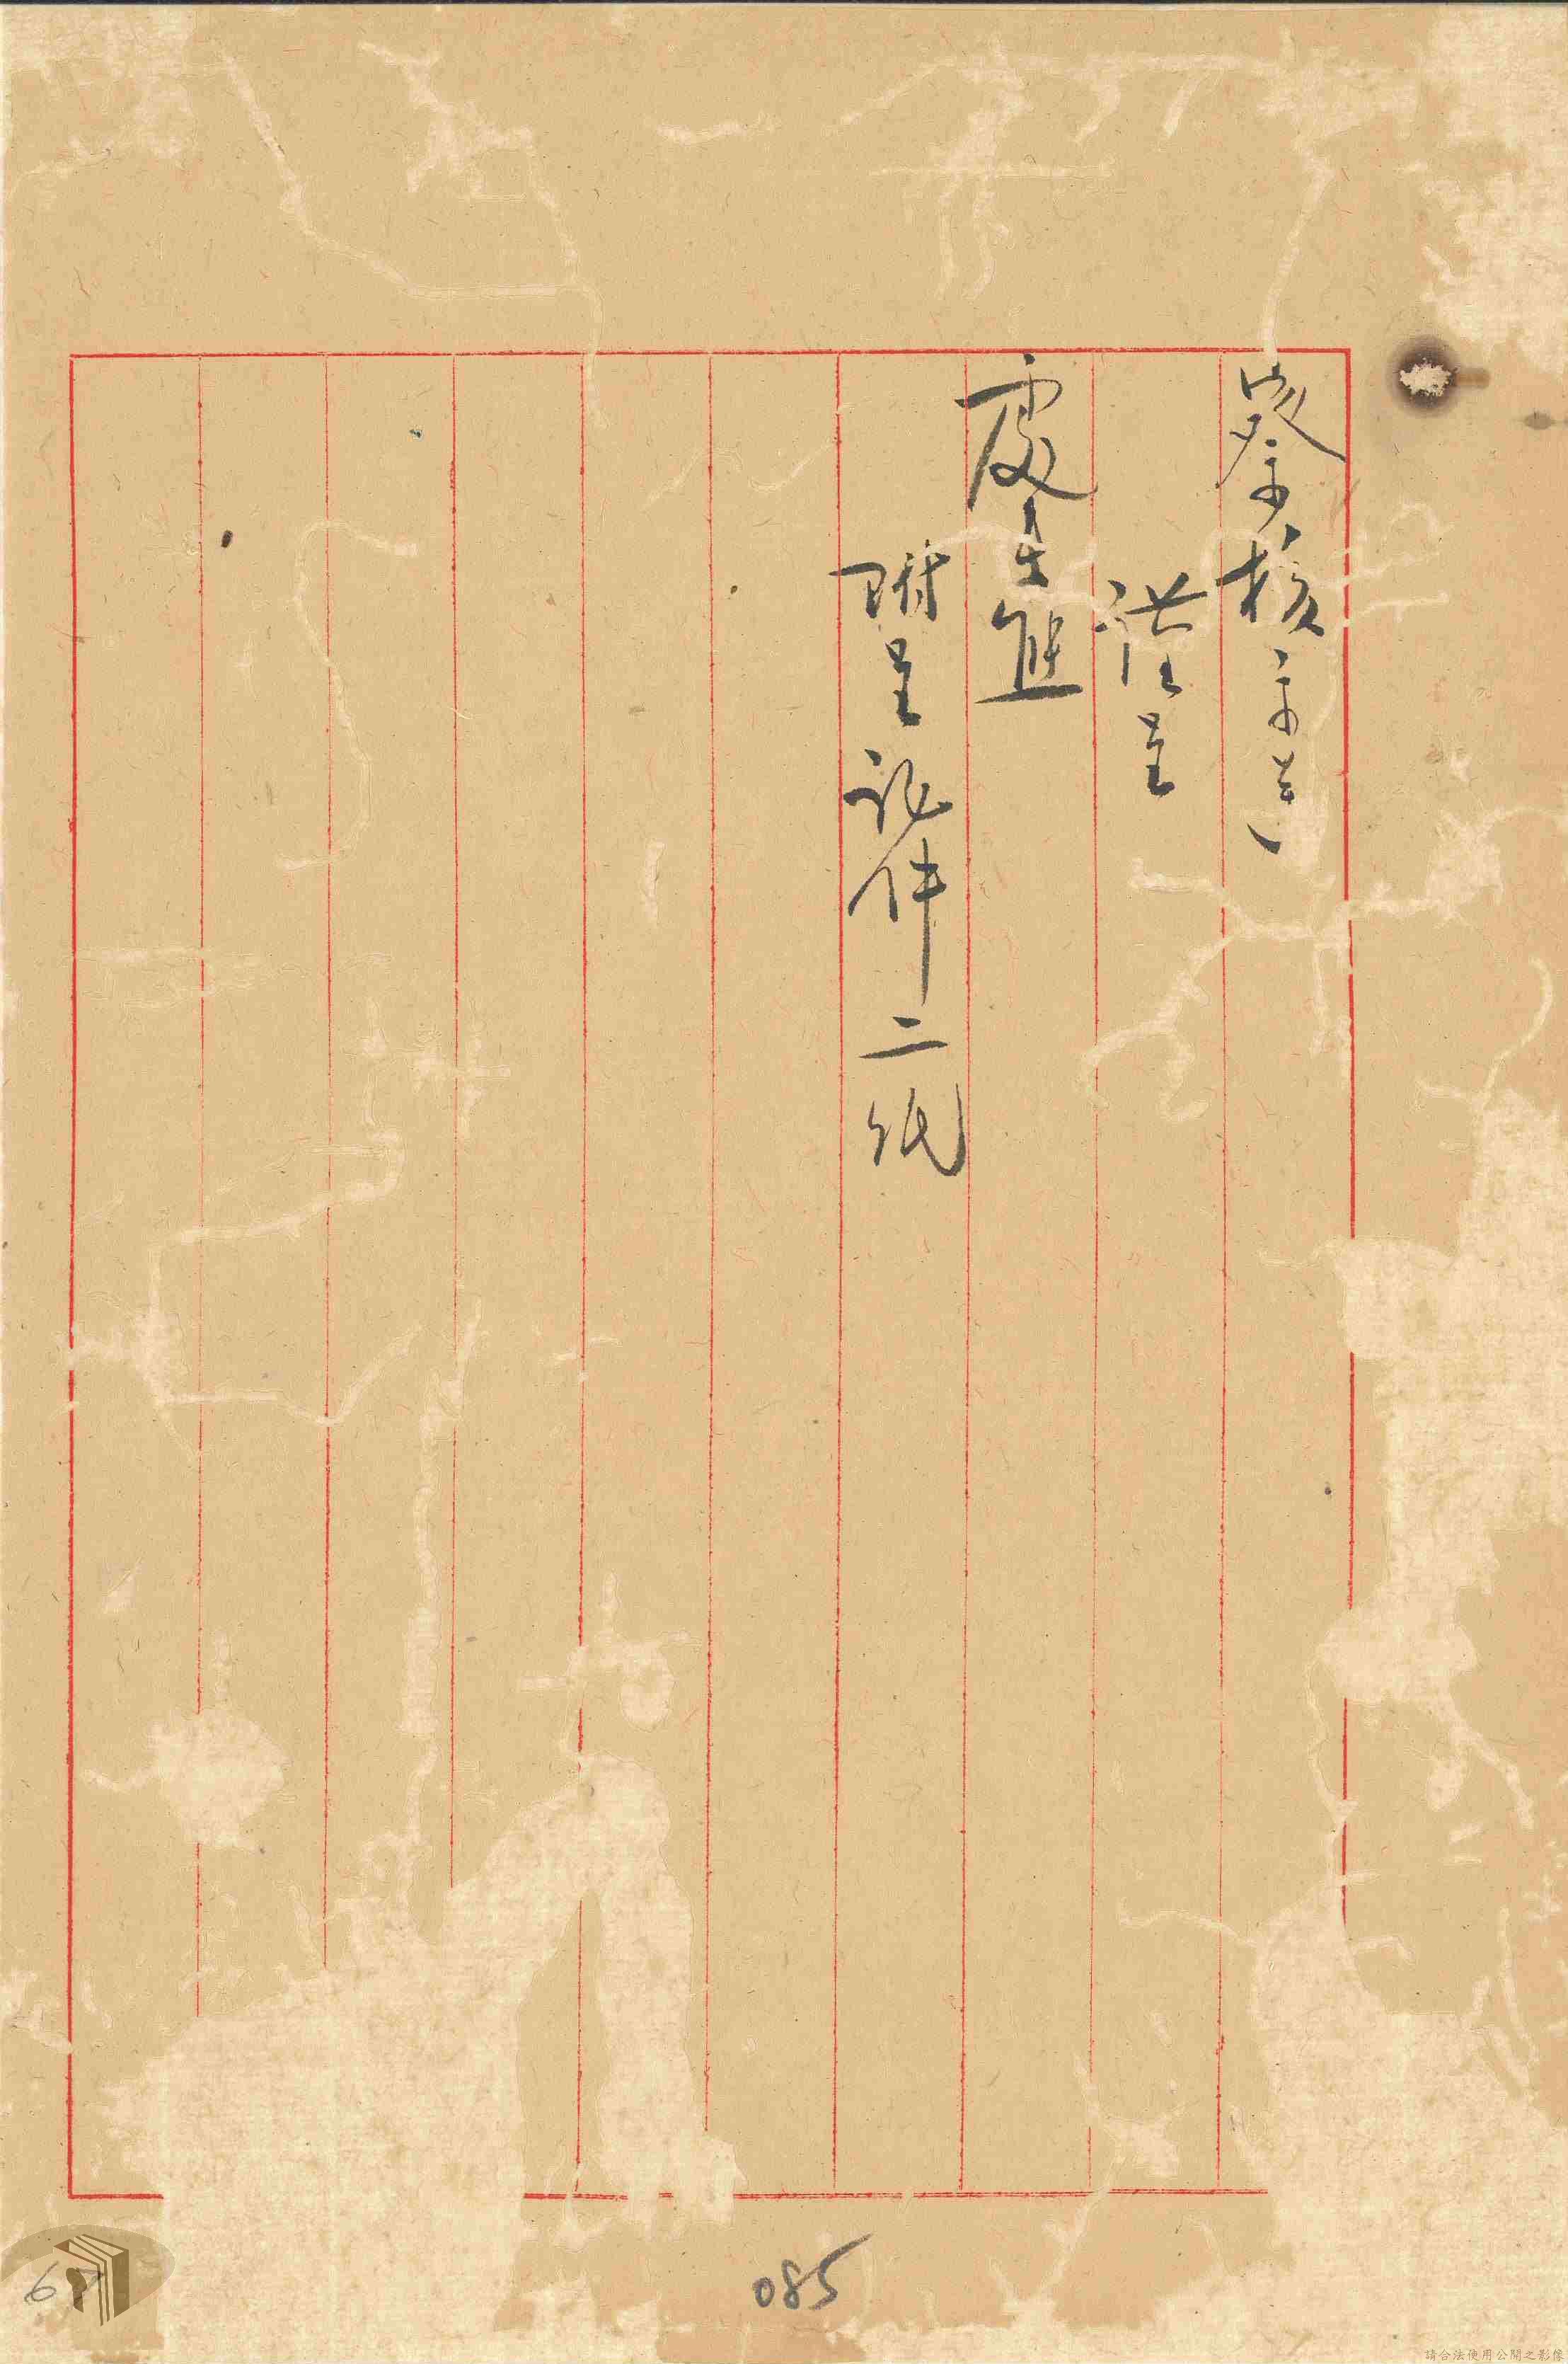 察核示遵
謹呈
處長熊
附呈證件二紙
085
請合法使用公開之影像